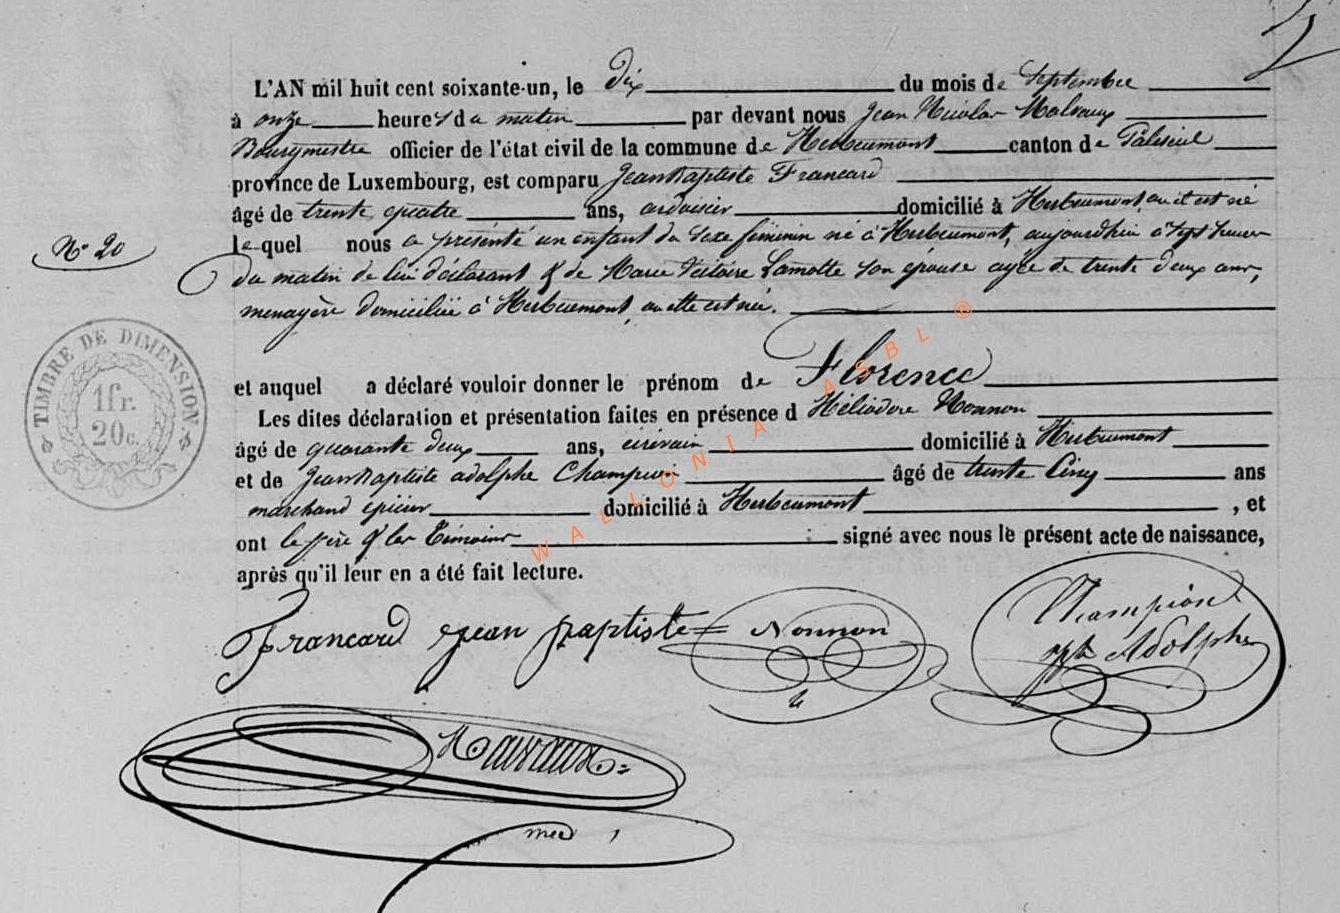 L'AN mil huit cent soixante-un, le dix du mois de Septembre
à onze heures du matin par devant nous Jean Nicolas Malvaux
Bourgmestre officier de l'état civil de la commune de Herbeumont canton de Paliseul
province de Luxembourg, est comparu Jean Baptiste Francard
âgé de trente quatre ans, ardoisier domicilié à Herbeumont, où il est né
N° 20
lequel nous a présenté un enfant du sexe féminin né à Herbeumont, aujourdhui à sept heures
du matin de lui déclarant & de Marie Victoire Lamotte son épouse agée de trente deux ans,
menagère domiciliée à Herbeumont, ou elle est née.
TIMBRE DE DIMENSION.
1fr.
20c.
et auquel a déclaré vouloir donner le prénom de Florence
Les dites déclaration et présentation faites en présence d Héliodore Nonnon
âgé de quarante deux ans, écrivain domicilié à Herbeumont
et de Jean Baptiste adolphe Champion âgé de trente cinq ans
marchand épicier domicilié à Herbeumont, et
ont le père & les témoins signé avec nous le présent acte de naissance,
après qu'il leur en a été fait lecture.
WALLONIA ASBL ®
Francard jean baptiste Nonnon Champion
Adolphe